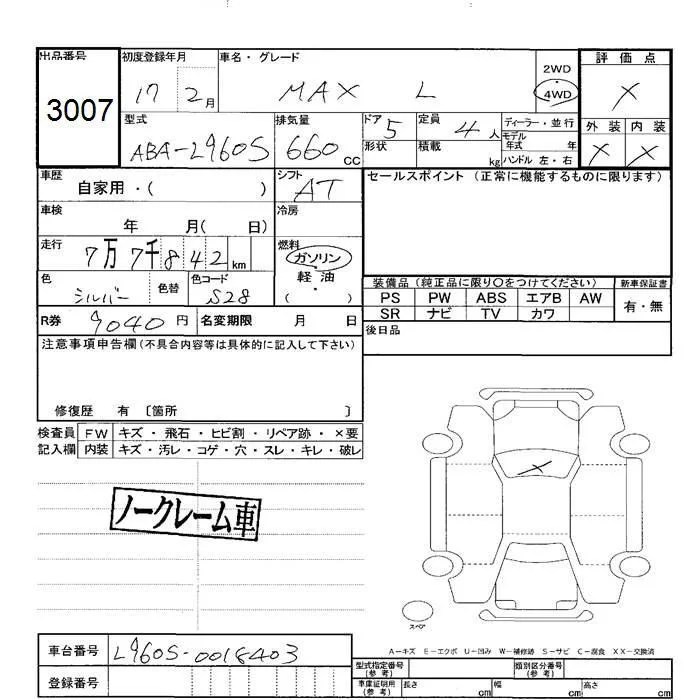 出品番号 初度登録年月 車名・グレード 評価点
3007 17 2月 MAX L 2WD 4WD X
型式 排気量 ドア 定員 ディーラー・並行 外装 内装
ABA-L960S 660cc 5 4人 モデル年式 年 X X
形状 積載 kg ハンドル 左・右
車歴 自家用・( ) シフト AT セールスポイント (正常に機能するものに限ります)
車検 年 月( 日) 冷房
走行 7万7千842km 燃料 ガソリン
軽油・( )
色 シルバー 色替 色コード S28
装備品 (純正品に限り○をつけてください) 新車保証書
PS PW ABS エアB AW 有・無
SR ナビ TV カワ
R券 9040円 名変期限 月 日
後日品
注意事項申告欄(不具合内容等は具体的に記入して下さい)
修復歴 有 〔箇所 〕
検査員 FW キズ・飛石・ヒビ割・リペア跡・×要
記入欄 内装 キズ・汚レ・コゲ・穴・スレ・キレ・破レ
X
ノークレーム車
スペア
A−キズ E−エクボ U−凹み W−補修跡 S−サビ C−腐食 XX−交換済
車台番号 L960S-0018403
登録番号
型式指定番号(参考) 類別区分番号(参考)
車庫証明用(参考) 長さ cm 幅 cm 高さ cm